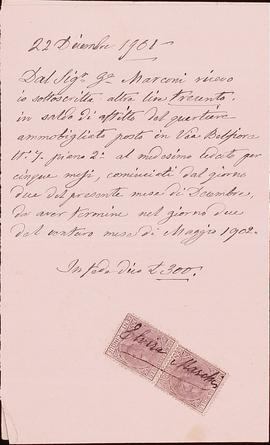 22 Dicembre 1901
Dal Sigr. Go Marconi ricevo
io sottoscritta altre lire trecento,
in saldo di affitto del quartiere
ammobigliato posto in Via Belfiore
No. 7. piano 2o. al medesimo ceduto per
cinque mesi, cominciati dal giorno
due del presente mese di Dicembre,
da aver termine nel giorno due
del venturo mese di Maggio 1902.
In fede dico £ 300.
Elvira